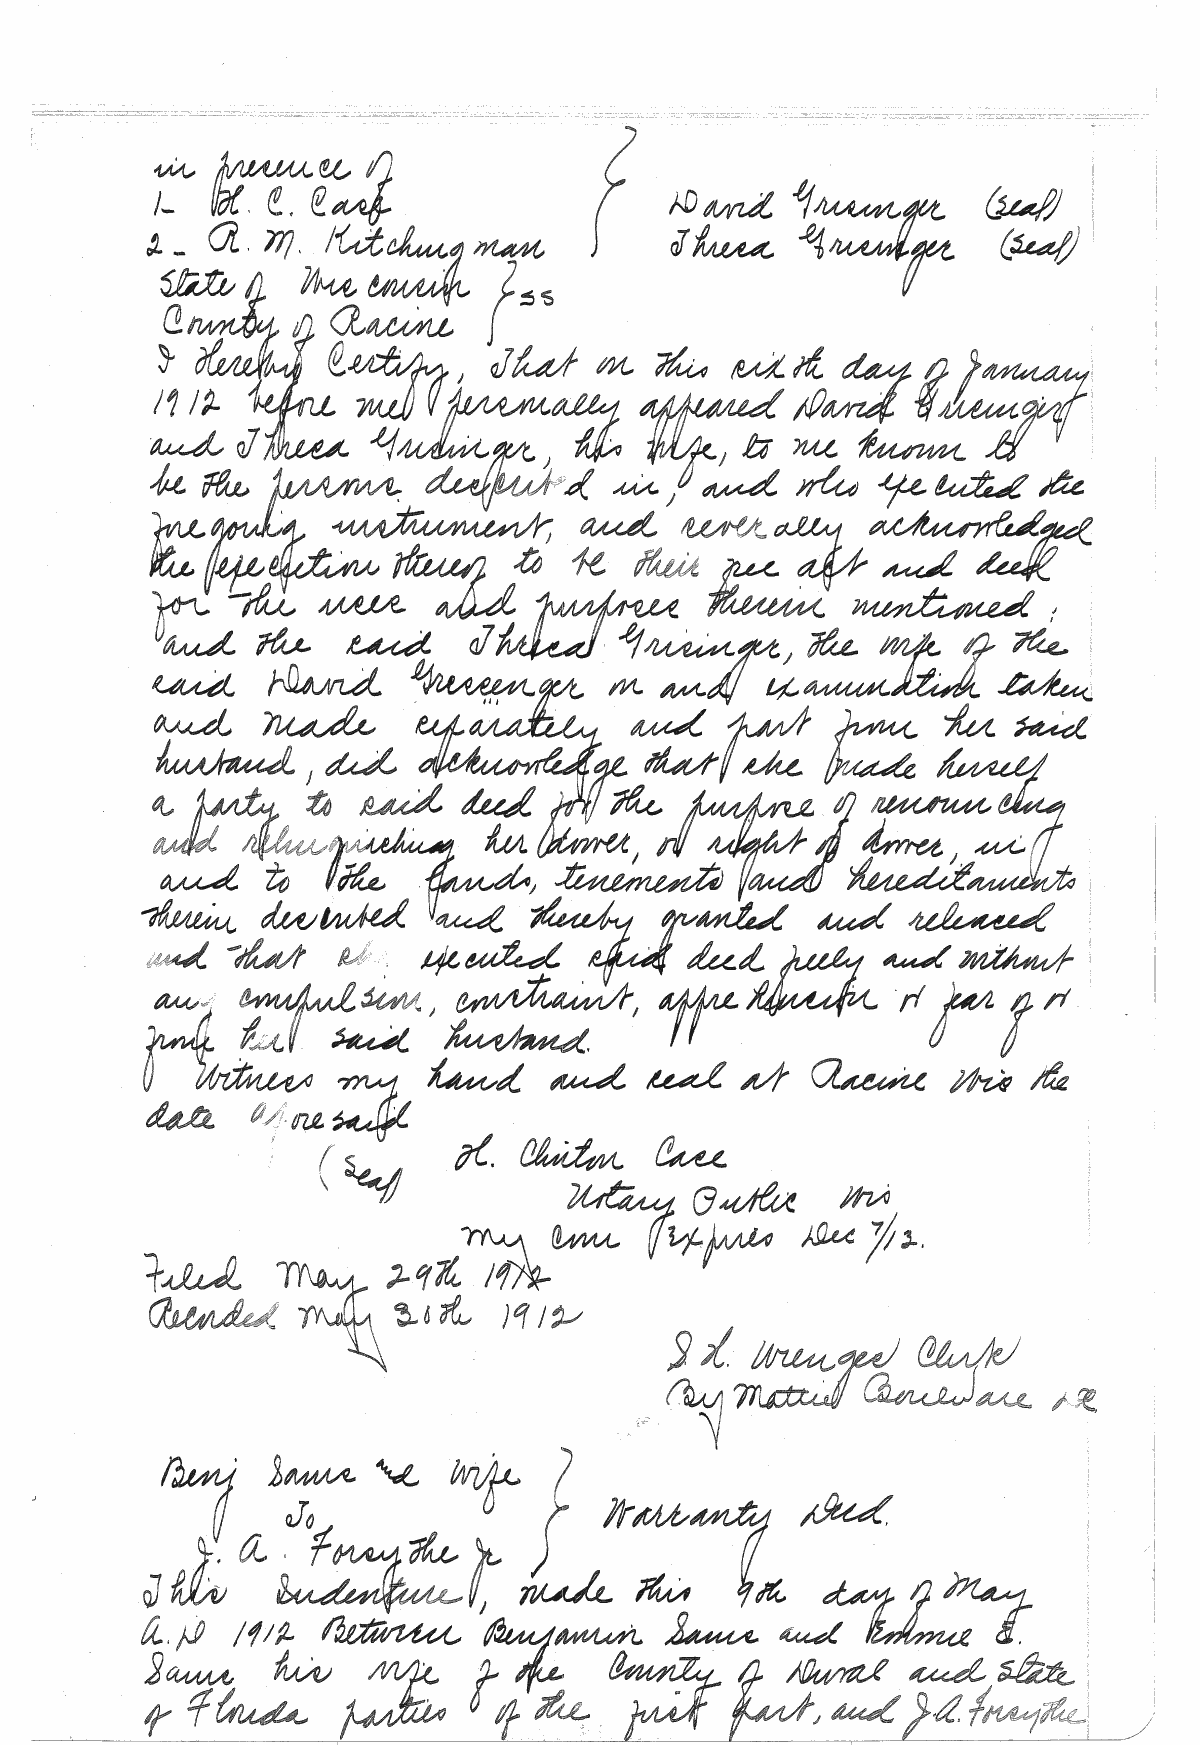 in presence of
1- H. C. Case
2- R. M. Kitchingman
David Grisinger (Seal)
Thresa Grisinger (Seal)
State of Wisconsin } ss
County of Racine
I Hereby Certify, That on this sixth day of January
1912 before me personally appeared David Grisinger
and Thresa Grisinger, his wife, to me known to
be the persons described in, and who executed the
foregoing instrument, and severally acknowledged
the execution thereof to be their free act and deed
for the uses and purposes therein mentioned;
and the said Thresa Grisinger, the wife of the
said David Gressenger on and examination taken
and made separately and part from her said
husband, did acknowledge that she made herself
a party to said deed for the purpose of renouncing
and relinquishing her dower, or right of dower, in
and to the lands, tenements and hereditaments
therein described and thereby granted and released
and that she executed said deed freely and without
any compulsion, constraint, apprehension or fear of or
from her said husband.
Witness my hand and seal at Racine Wis the
date aforesaid
(Seal) H. Clinton Case
Notary Public Wis
My Com Expires Dec 7/13.
Filed May 29th 1912
Recorded May 30th 1912
Clerk
By Mattie Bouleware DC
Benj Sams and Wife
To
J. A. Forsythe Jr
Warranty Deed.
This Indenture, made this 9th day of May
A.D 1912 Between Benjamin Sams and Emmie E.
Sams his wife of the County of Duval and State
of Florida parties of the first part, and J.A. Forsythe